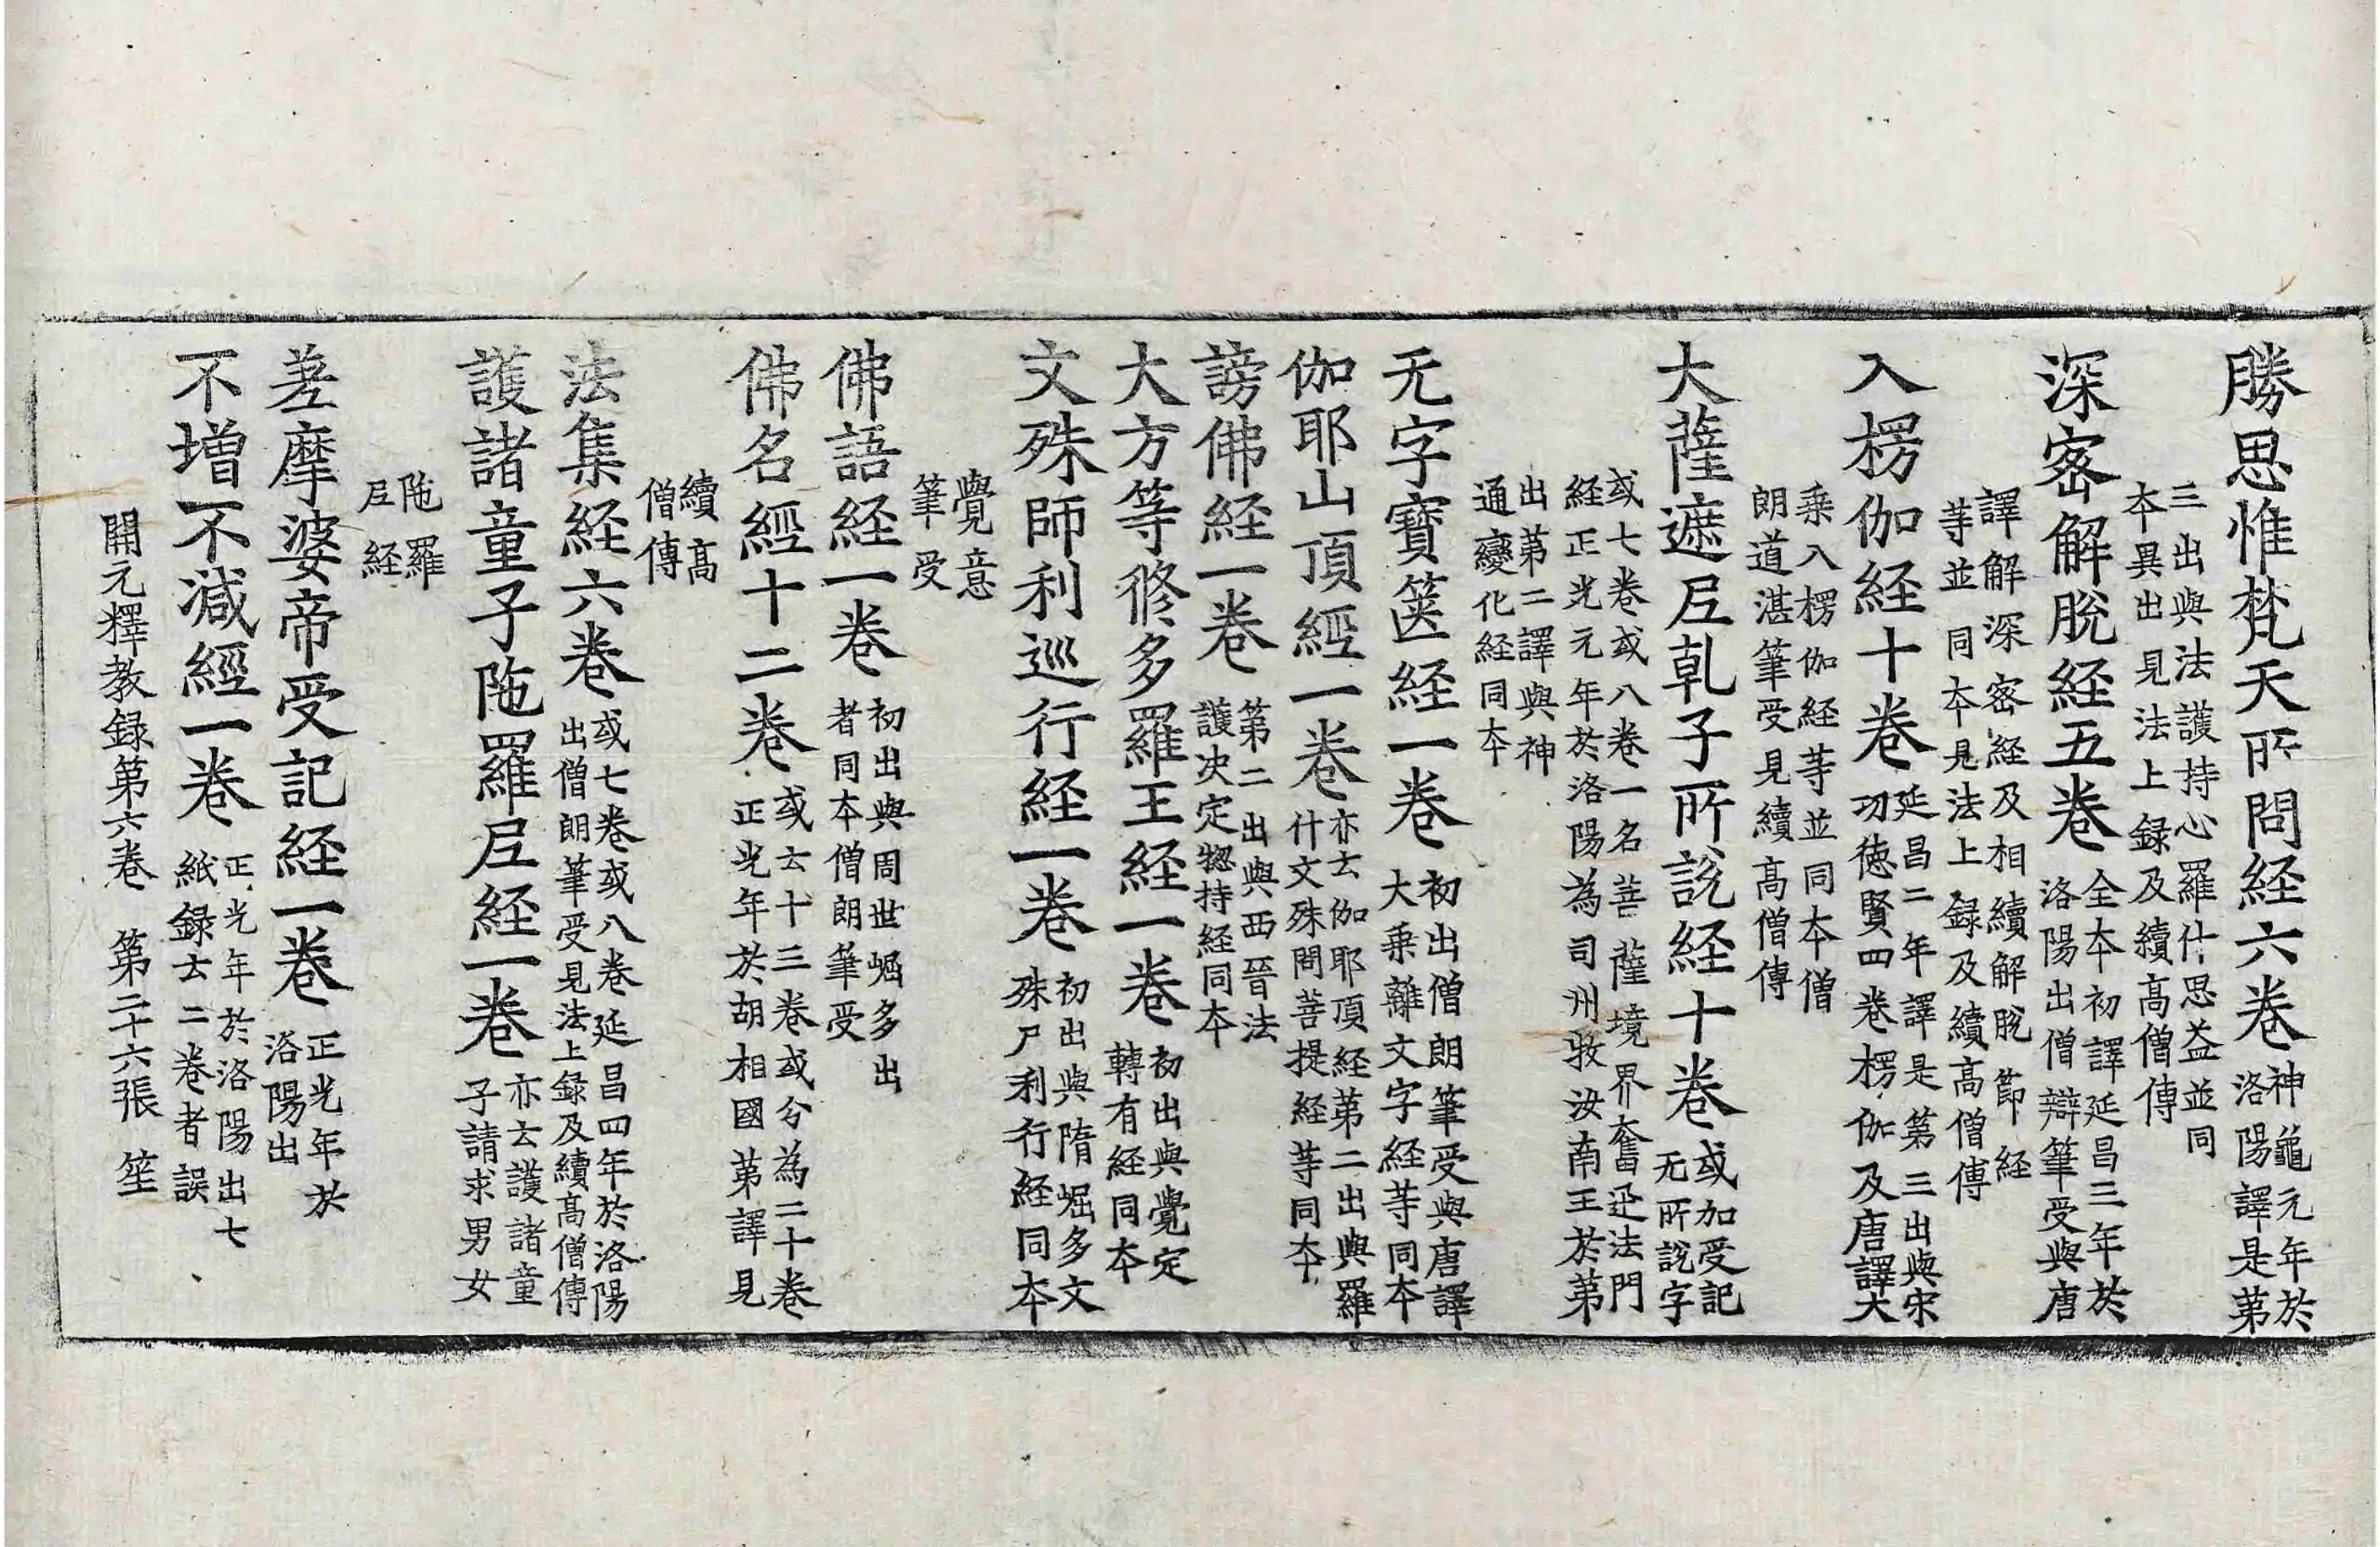 勝思惟梵天所問経六巻 神龜元年於洛陽譯是第
三出與法護持心羅什思益並同本異出見法上録及續高僧傳
深密解脫経五巻 全本初譯延昌三年於洛陽出僧辯筆受與唐
譯解深密経及相續解脫節経等並同本見法上録及續高僧傳
入楞伽経十巻 延昌二年譯是第三出與宋功徳賢四巻楞伽及唐譯大
乗入楞伽経等並同本僧朗道湛筆受見續高僧傳
大薩遮尼乹子所說経十巻 或加受記无所說字
或七巻或八巻一名菩薩境界奮迅法門経正光元年於洛陽為司州牧汝南王於第
无字寶篋経一巻 初出僧朗筆受與唐譯大乗離文字経等同本
出第二譯與神通變化経同本
伽耶山頂經一巻 亦云伽耶頂経第二出與羅什文殊問菩提経等同本
謗佛経一巻 第二出與西晉法護决定惣持経同本
大方等修多羅王経一巻 初出與覺定轉有経同本
文殊師利巡行経一巻 初出與隋崛多文殊尸利行経同本
覺意筆受
佛語経一巻 初出與周世崛多出者同本僧朗筆受
佛名經十二巻 或云十三巻或分為二十巻正光年於胡相國第譯見
續高僧傳
法集経六巻 或七巻或八巻延昌四年於洛陽出僧朗筆受見法上録及續高僧傳
護諸童子陁羅尼経一巻 亦云護諸童子請求男女
陁羅尼経
差摩婆帝受記経一巻 正光年於洛陽出
不增不減經一巻 正光年於洛陽出七紙録云二巻者誤
開元釋教録第六巻 第二十六張 笙